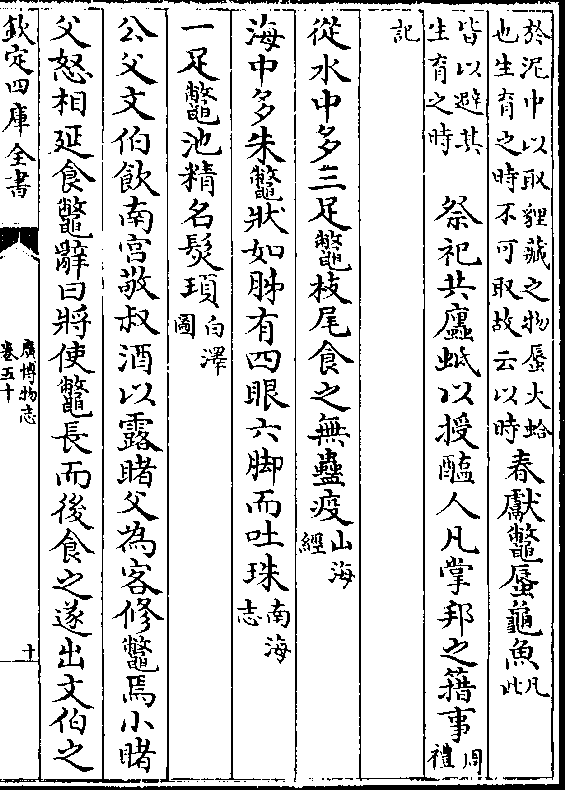 於泥中以取貍藏之物蜃大蛤
也生育之時不可取故云以時
春獻鼈蜃龜魚
凡
此
皆以避其
生育之時
祭祀共蠯蚳以授醢人凡掌邦之籍事
周
禮
記
從水中多三足鼈枝尾食之無蠱疫
山海
經
海中多朱鼈狀如胏有四眼六脚而吐珠
南海
志
一足鼈池精名髮頊
白澤
圖
公父文伯飲南宫敬叔酒以露睹父為客修鼈焉小睹
父怒相延食鼈辭曰將使鼈長而後食之遂出文伯之
欽定四庫全書
廣博物志
卷五十
十